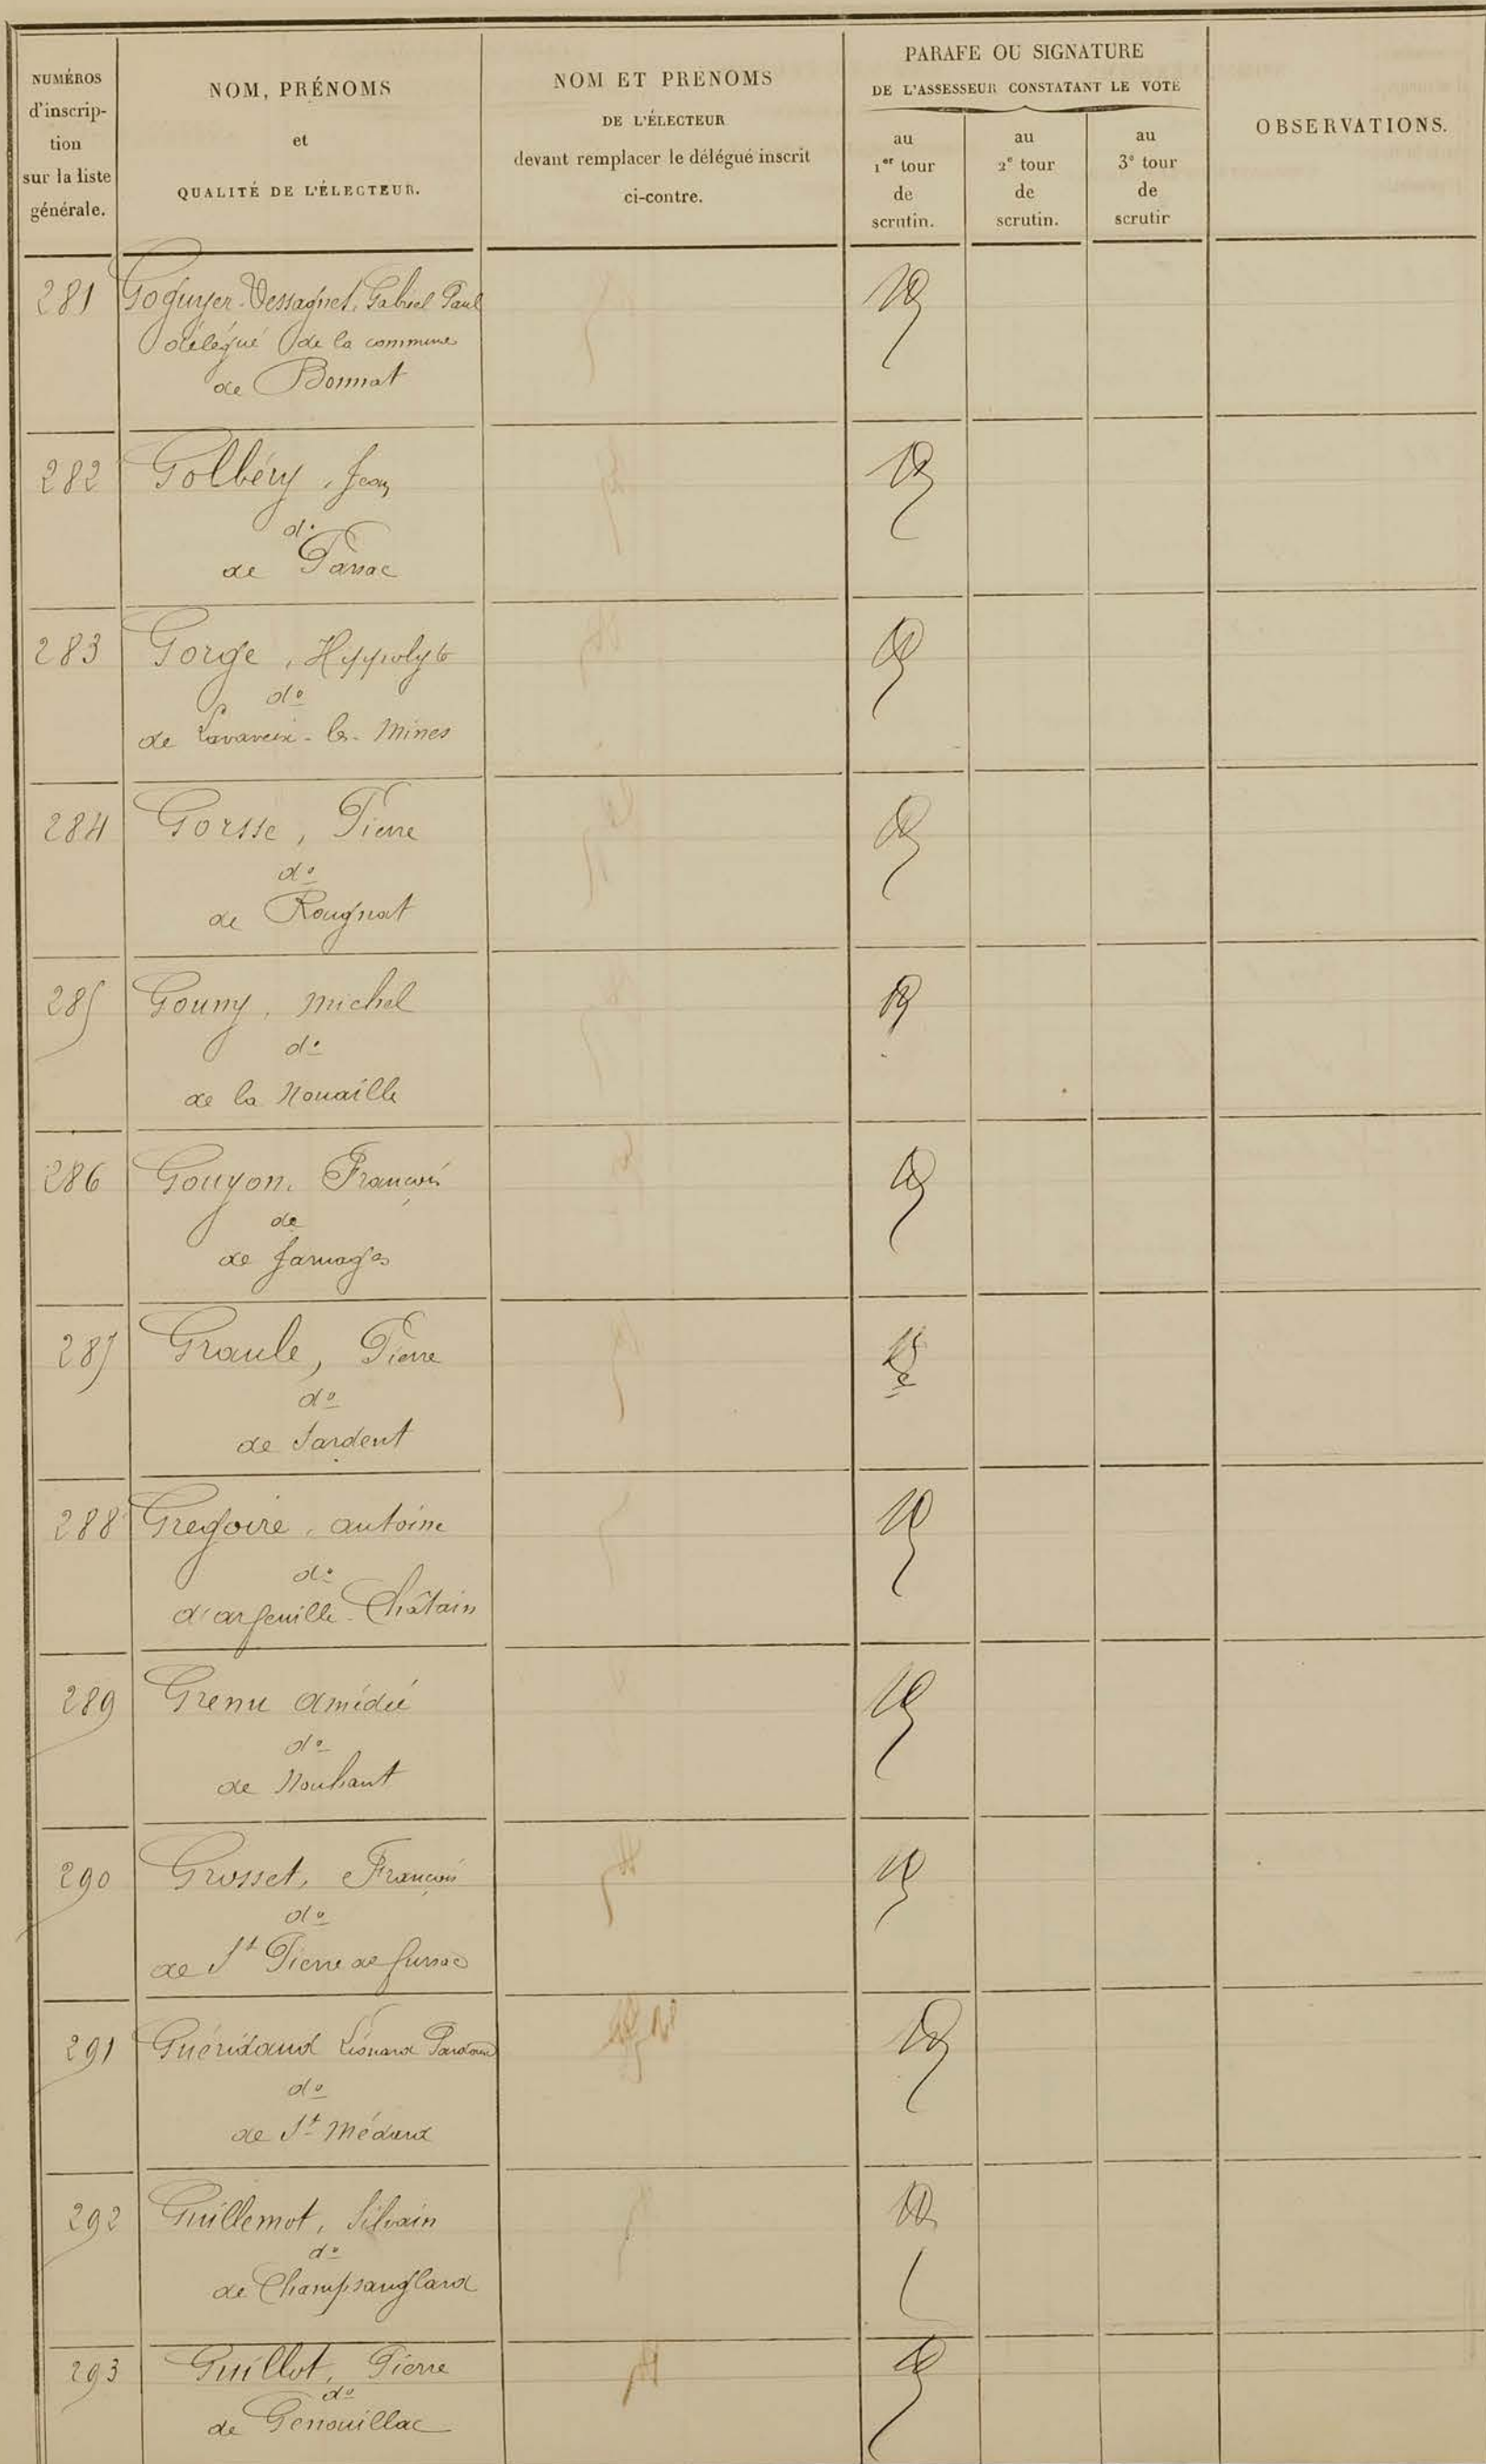 NUMÉROS
d'inscrip-
tion
sur la liste
générale.
NOM, PRÉNOMS
et
QUALITÉ DE L'ÉLECTEUR.
NOM ET PRÉNOMS
DE L'ÉLECTEUR
devant remplacer le délégué inscrit
ci-contre.
PARAFE OU SIGNATURE
DE L'ASSESSEUR CONSTATANT LE VOTE
au
1er tour
de
scrutin.
au
2e tour
de
scrutin.
au
3e tour
de
scrutin
OBSERVATIONS.
281 Goguyer-Dessagnes, Gabriel Paul
délégué de la commune
de Bonnat
282 Golbéry, Jean
do
de Parsac
283 Gorge, Hippolyte
do
de Lavaveix-les-Mines
284 Gorsse, Pierre
do
de Rougnat
285 Goumy, Michel
do
de la Nouaille
286 Gouyon, François
do
de Jarnages
287 Graule, Pierre
do
de Sardent
288 Gregoire, antoine
do
d'arfeuille-Châtain
289 Grenu Amédée
do
de Nouhant
290 Grosset, François
do
de St Pierre de fursac
291 Guéridaud Léonard Pardoux
do
de St Médard
292 Guillemot, Silvain
do
de Champsanglard
293 Guillot, Pierre
do
de Genouillac